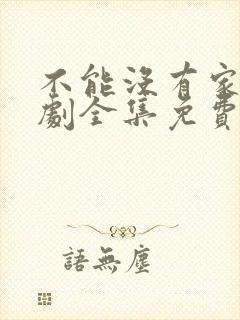 不能沒有家
劇全集免費
語無塵